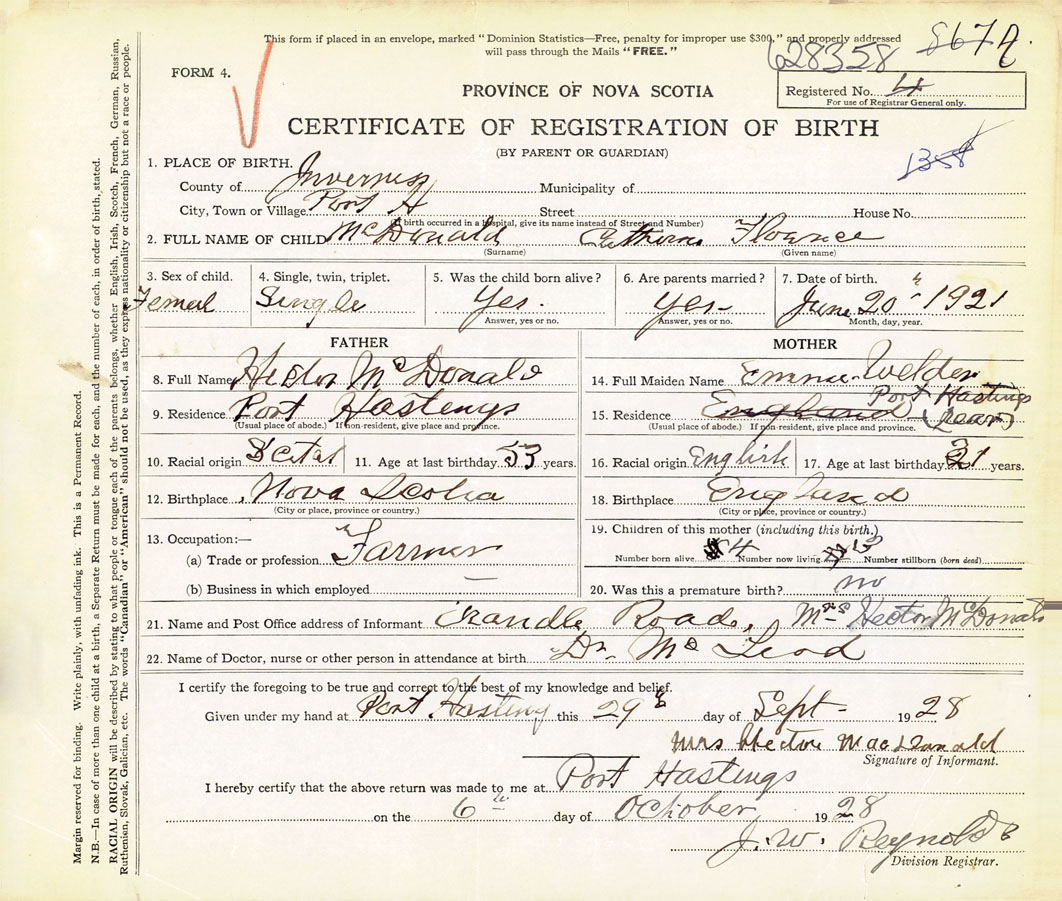 This form if placed in an envelope, marked "Dominion Statistics—Free, penalty for improper use $300," and properly addressed
will pass through the Mails "FREE."
867
628358
FORM 4.
PROVINCE OF NOVA SCOTIA
Registered No. 4
For use of Registrar General only.
CERTIFICATE OF REGISTRATION OF BIRTH
(BY PARENT OR GUARDIAN)
1358
1. PLACE OF BIRTH.
County of Inverness Municipality of
City, Town or Village Port H Street House No.
(If birth occurred in a hospital, give its name instead of Street and Number)
2. FULL NAME OF CHILD McDonald Florence
(Surname) (Given name)
3. Sex of child. 4. Single, twin, triplet. 5. Was the child born alive? 6. Are parents married? 7. Date of birth.
Femal Single Yes. Yes- June 20th 1921
Answer, yes or no. Answer, yes or no. Month, day, year.
FATHER MOTHER
8. Full Name Hector McDonald 14. Full Maiden Name Welden
Port Hastings
9. Residence Port Hastings 15. Residence England
(Usual place of abode.) If non-resident, give place and province. (Usual place of abode.) If non-resident, give place and province.
10. Racial origin 11. Age at last birthday 53 years. 16. Racial origin English 17. Age at last birthday years.
12. Birthplace Nova Scotia 18. Birthplace England
(City or place, province or country.) (City or place, province or country.)
13. Occupation:— 19. Children of this mother (including this birth.)
(a) Trade or profession Farmer Number born alive 4 Number now living Number stillborn (born dead)
(b) Business in which employed 20. Was this a premature birth? no
21. Name and Post Office address of Informant Road, Mrs Hector McDonald
22. Name of Doctor, nurse or other person in attendance at birth Dr. McLeod
I certify the foregoing to be true and correct to the best of my knowledge and belief.
Given under my hand at Port Hasting this 29th day of Sept- 1928
Mrs Hector MacDonald
Signature of Informant.
I hereby certify that the above return was made to me at Port Hastings
on the 6th day of October 1928
J. W. Reynolds
Division Registrar.
Margin reserved for binding. Write plainly, with unfading ink. This is a Permanent Record.
N.B.—In case of more than one child at a birth, a Separate Return must be made for each, and the number of each, in order of birth, stated.
RACIAL ORIGIN will be described by stating to what people or tongue each of the parents belongs, whether English, Irish, Scotch, French, German, Russian,
Ruthenian, Slovak, Galician, etc. The words "Canadian" or "American" should not be used, as they express nationality or citizenship but not a race or people.